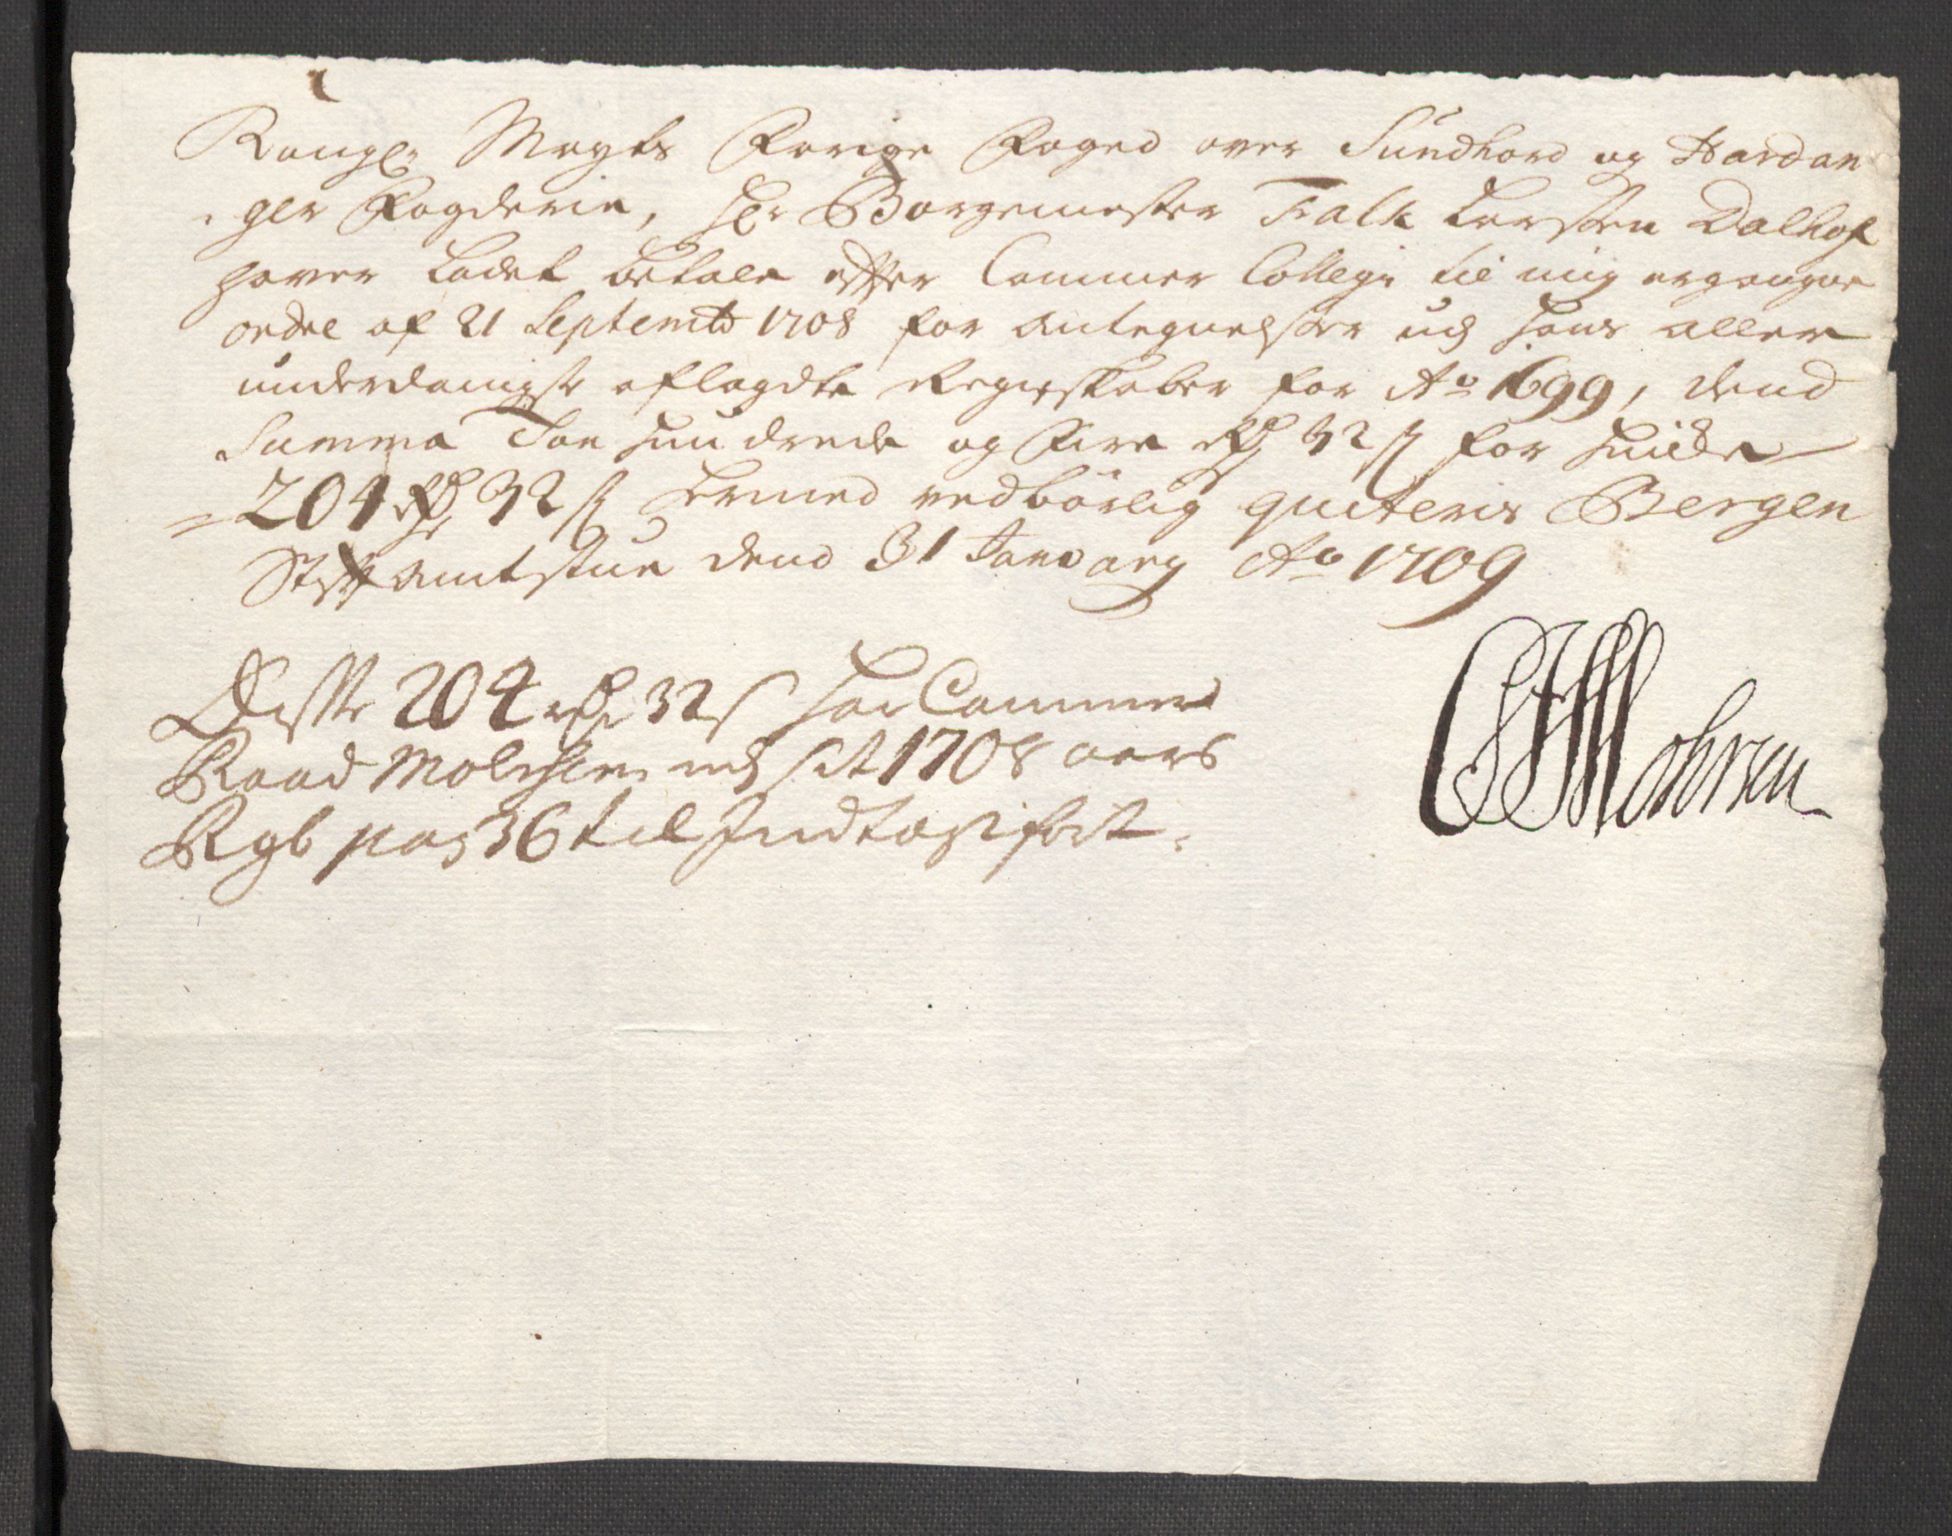 Kongl: Mayts Forige Foged over Sundhord og Hardan
ger Fogderie, Hr Borgemester Falk Larssen Dalhof
haver ladet betale effter Cammer Collegii til mig ergangne
ordre af 21 Septembr 1708 for Antegnelser udj hans aller
underdanigst aflagdte Regenskaber for Ao 1699, dend
Summa Toe hundrede og Fire rdr 32 s for hvilke
204 rdr 32 s hermed vedbörlig quiteris Bergen
Stifftamtstue dend 31 January Ao 1709
Disse 204 rdr 32 s har Cammer
Raad udj sit 1708 aars
Rgb pag 36 til Indtægt fört.